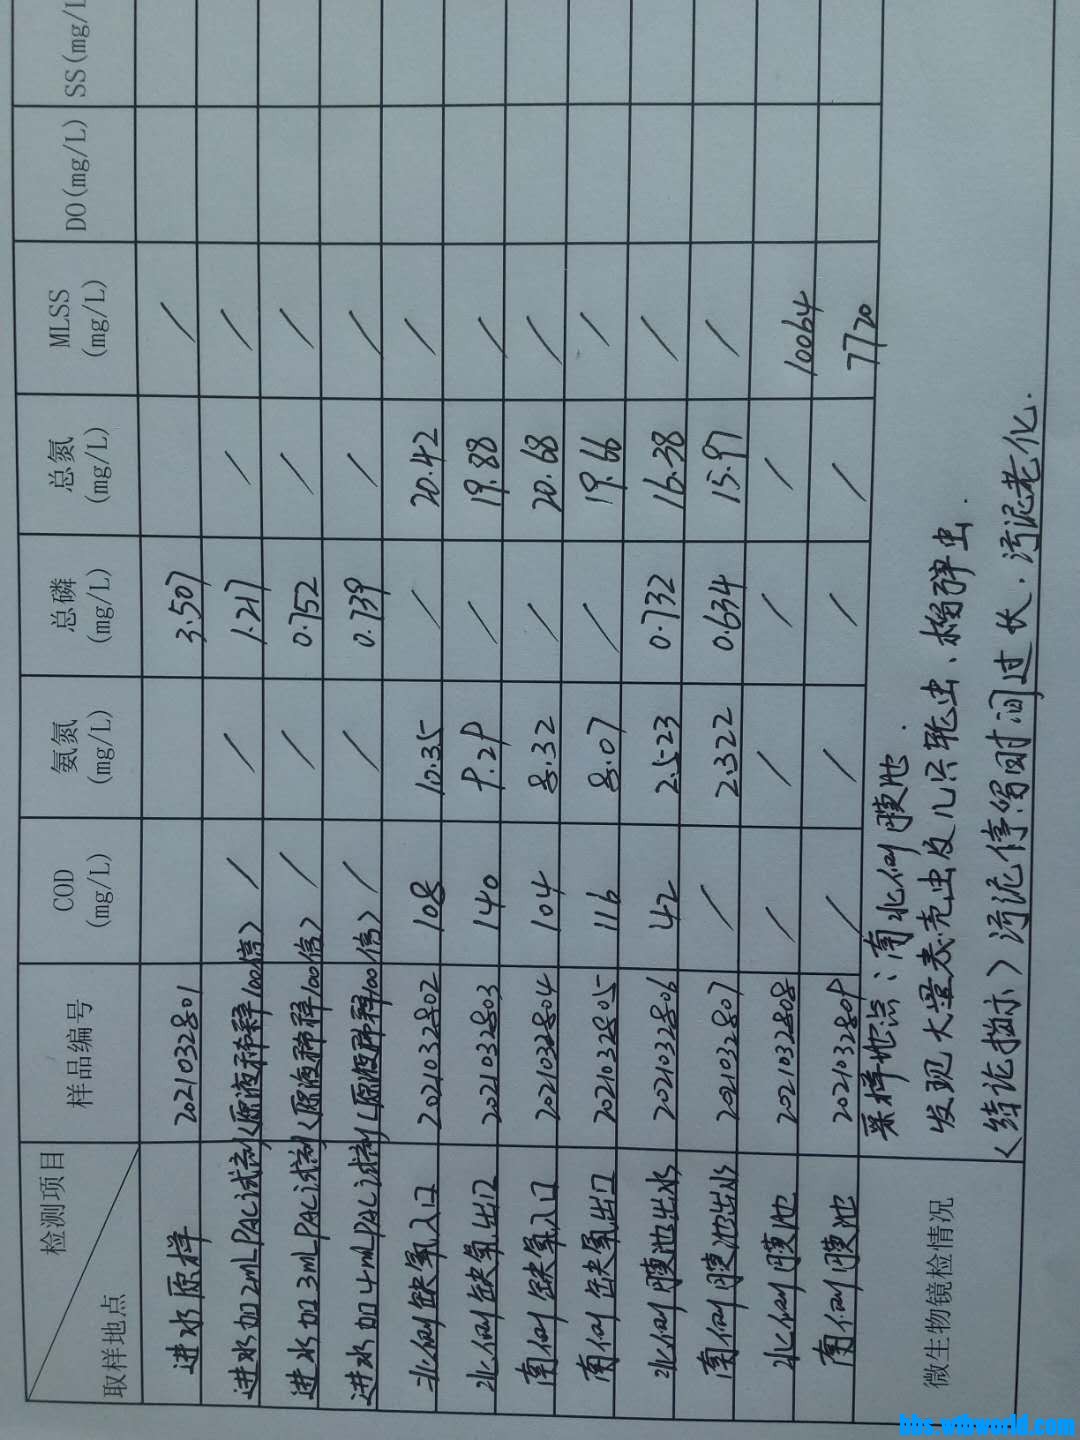 检测项目
取样地点 样品编号 COD (mg/L) 氨氮 (mg/L) 总磷 (mg/L) 总氮 (mg/L) MLSS (mg/L) DO(mg/L) SS(mg/L
进水原样 2021032801 3.507 /
进水加2mLPAC试剂(原液稀释100倍) / / 1.217 / /
进水加3mLPAC试剂(原液稀释100倍) / / 0.752 / /
进水加4mLPAC试剂(原液稀释100倍) / / 0.739 / /
北侧缺氧入口 2021032802 108 10.35 / 20.42 /
北侧缺氧出口 2021032803 140 9.29 / 19.88 /
南侧缺氧入口 2021032804 104 8.32 / 20.68 /
南侧缺氧出口 2021032805 116 8.07 / 19.66 /
北侧膜池出水 2021032806 42 2.523 0.732 16.38 /
南侧膜池出水 2021032807 / 2.322 0.634 15.97 /
北侧膜池 2021032808 / / / / 10064
南侧膜池 2021032809 / / / / 7720
微生物镜检情况
采样地点:南北侧膜池.
发现大量表壳虫及几只轮虫、榴弹虫.
(结论指示)污泥停留时间过长.污泥老化.
bbs.wtbworld.com